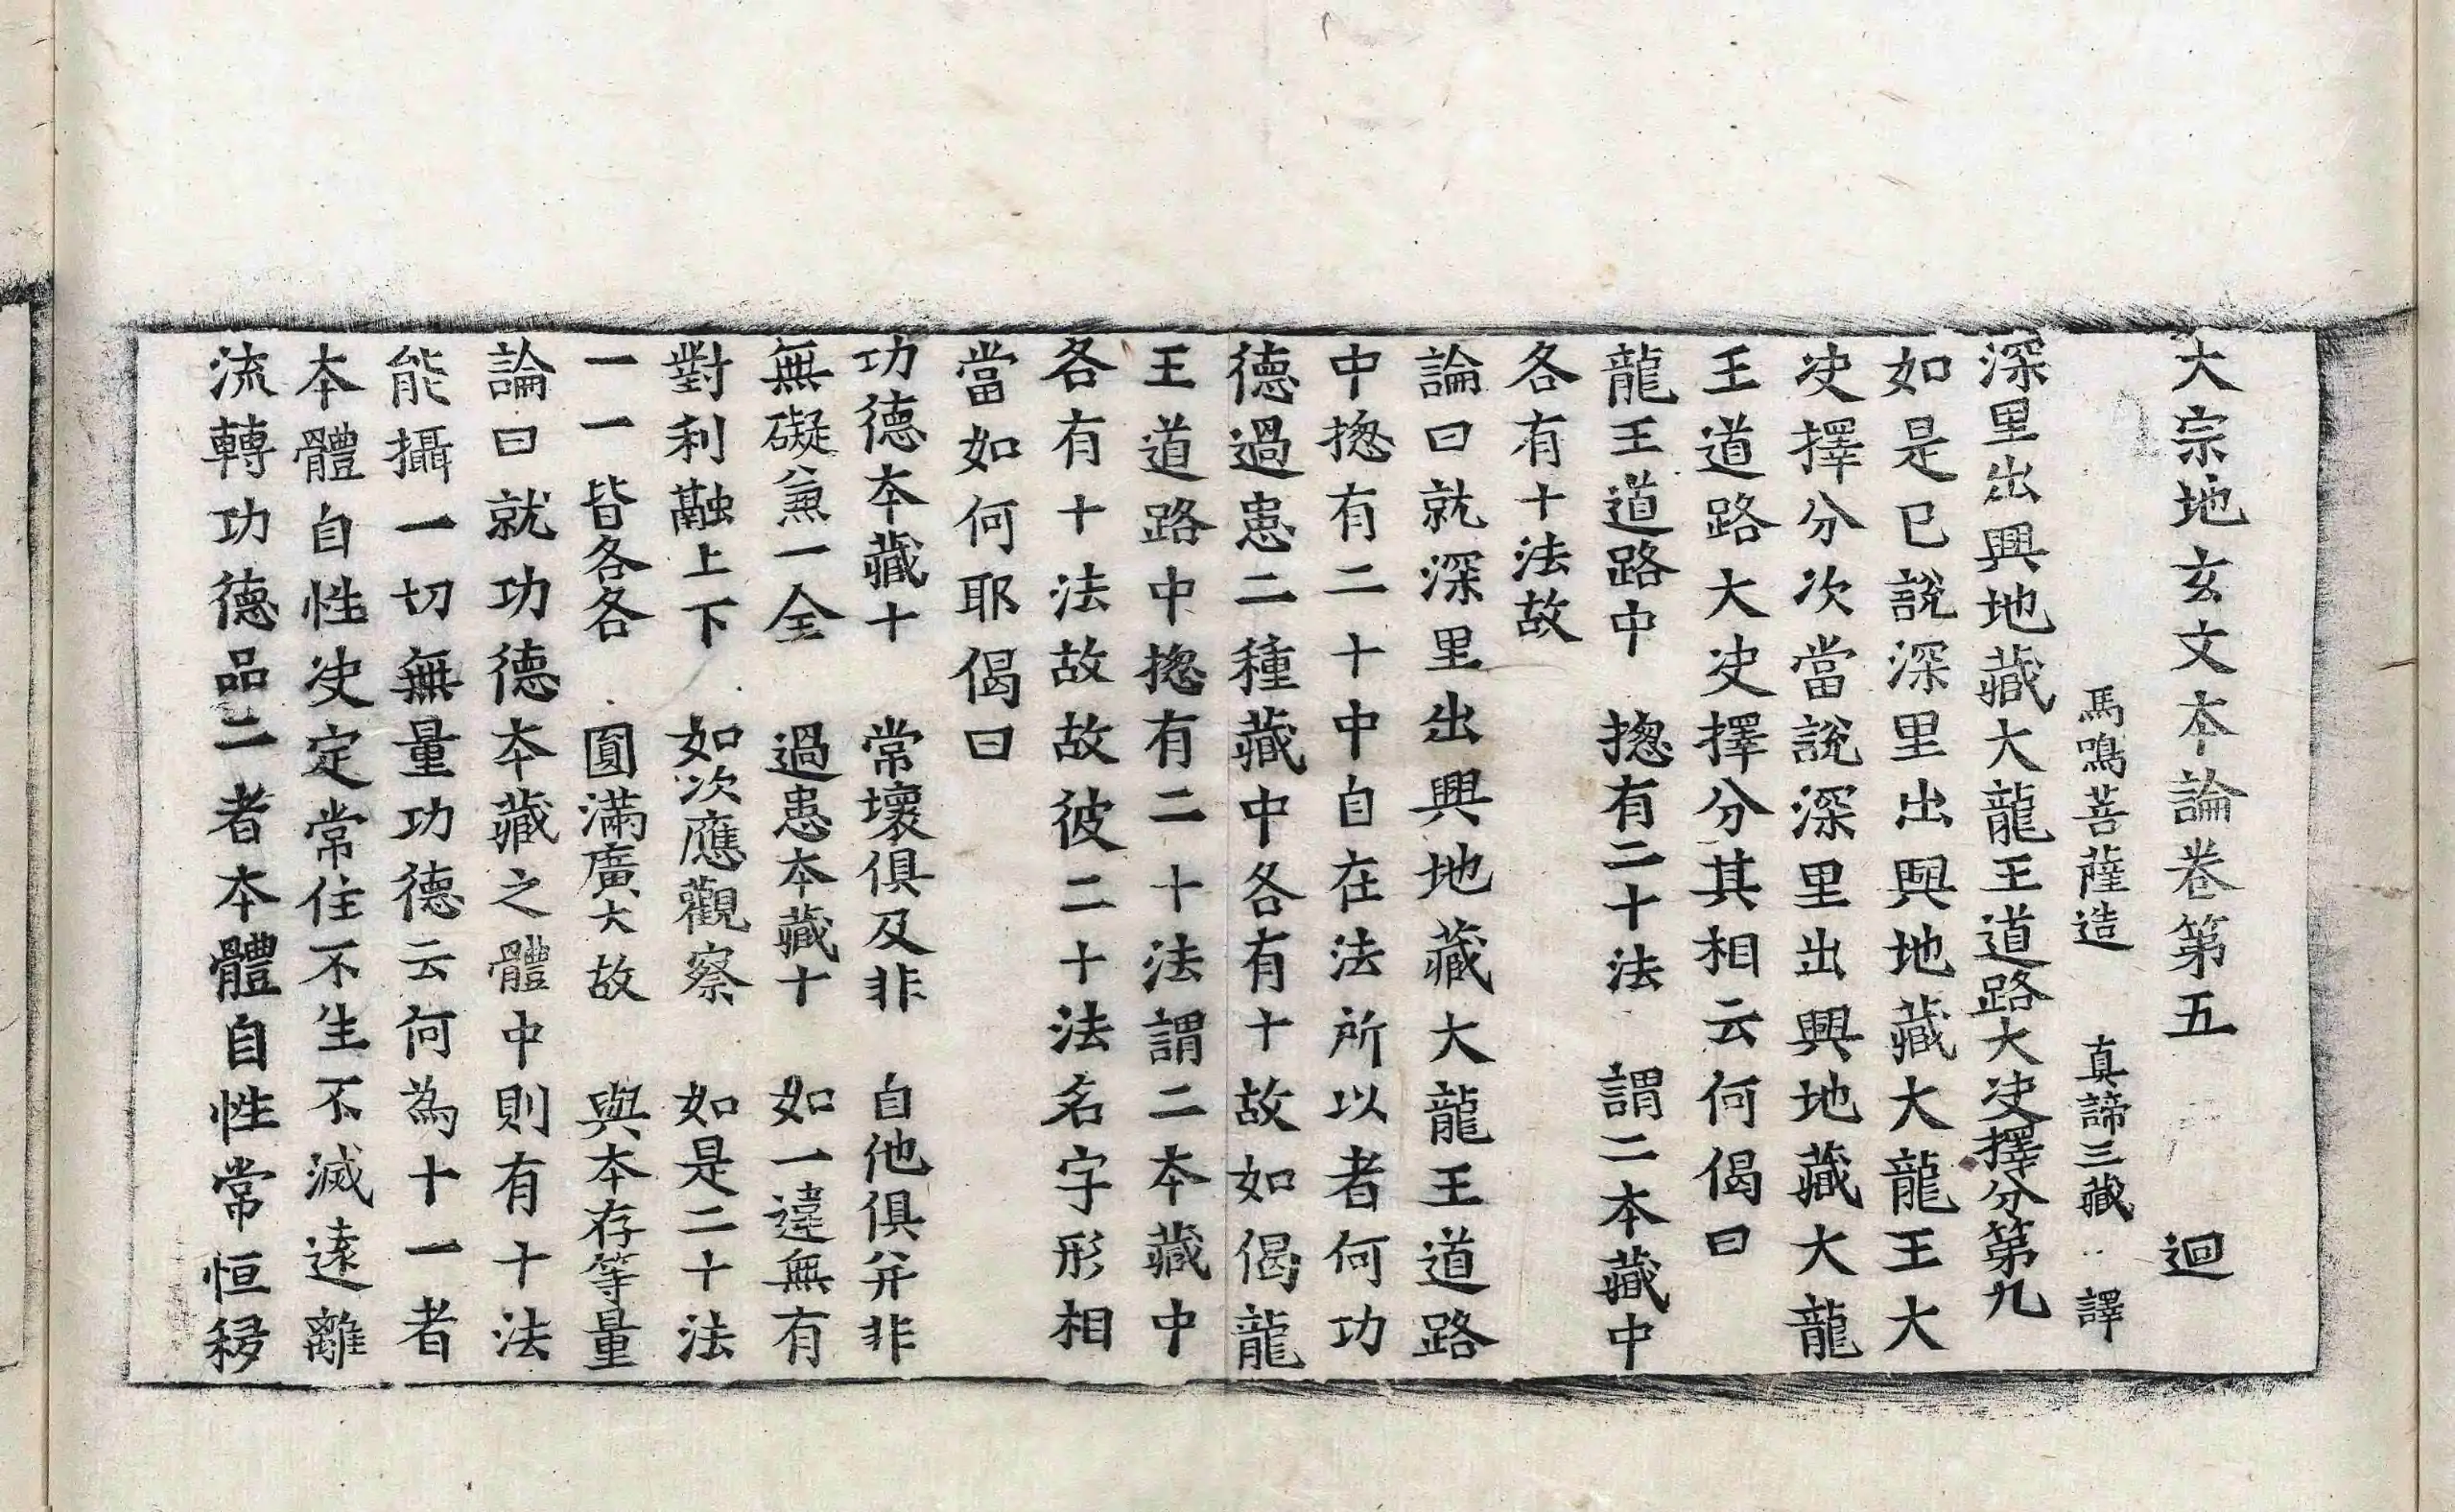 大宗地玄文夲論卷第五　迴
馬鳴菩薩造　真諦三藏　譯
深里出興地藏大龍王道路大决擇分第九
如是已說深里出興地藏大龍王大
决擇分次當說深里出興地藏大龍
王道路大决擇分其相云何偈曰
龍王道路中　揔有二十法　謂二本藏中
各有十法故
論曰就深里出興地藏大龍王道路
中揔有二十中自在法所以者何功
德過患二種藏中各有十故如偈龍
王道路中揔有二十法謂二本藏中
各有十法故故彼二十法名字形相
當如何耶偈曰
功德夲藏十　常壞俱及非　自他俱并非
無礙兼一全　過患本藏十　如一違無有
對利融上下　如次應觀察　如是二十法
一一皆各各　圓滿廣大故　與夲存等量
論曰就功德夲藏之體中則有十法
能攝一切無量功德云何為十一者
夲體自性决定常住不生不滅遠離
流轉功德品二者本體自性常恒移